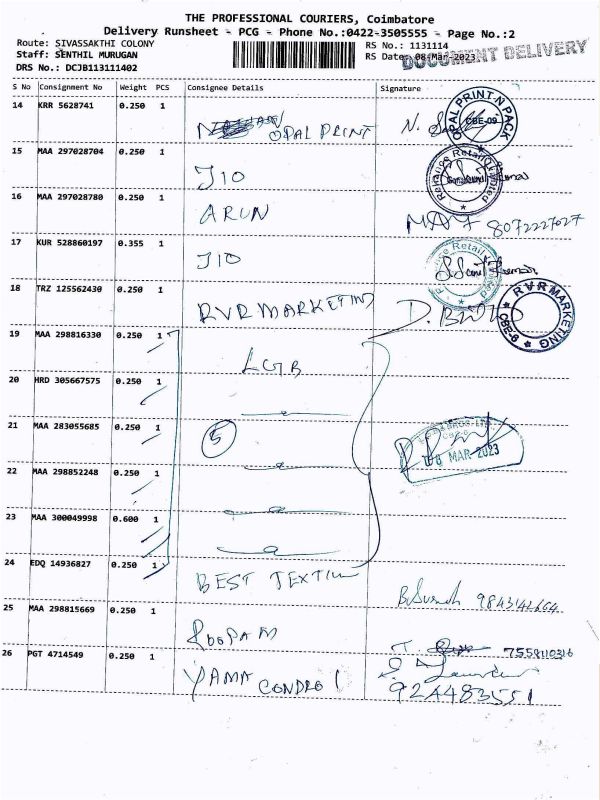 THE PROFESSIONAL COURIERS, Coimbatore
Delivery Runsheet - PCG - Phone No.:0422-3505555 - Page No.:2
Route: SIVASSAKTHI COLONY
Staff: SENTHIL MURUGAN
DRS No.: DCJB113111402
RS No.: 1131114
RS Date: 08-Mar-2023
DOCUMENT DELIVERY
S No Consignment No Weight PCS Consignee Details Signature
14 KRR 5628741 0.250 1
OPAL PRINT N.
OPAL PRINT N PACK CBE-09
15 MAA 297028704 0.250 1
JIO
Reliance Retail Limited
16 MAA 297028780 0.250 1
ARUN
8072227027
17 KUR 528860197 0.355 1
JIO
Reliance Retail Limited
18 TRZ 125562430 0.250 1
RVR MARKETING D.
RVR MARKETING CBE-6
19 MAA 298816330 0.250 1
LGB
20 HRD 305667575 0.250 1
21 MAA 283055685 0.250 1
5
MAR 2023
22 MAA 298852248 0.250 1
23 MAA 300049998 0.600 1
24 EDQ 14936827 0.250 1
BEST TEXTILE
25 MAA 298815669 0.250 1
ROOPAM
7558110316
26 PGT 4714549 0.250 1
YAMA CONDROL
924483551